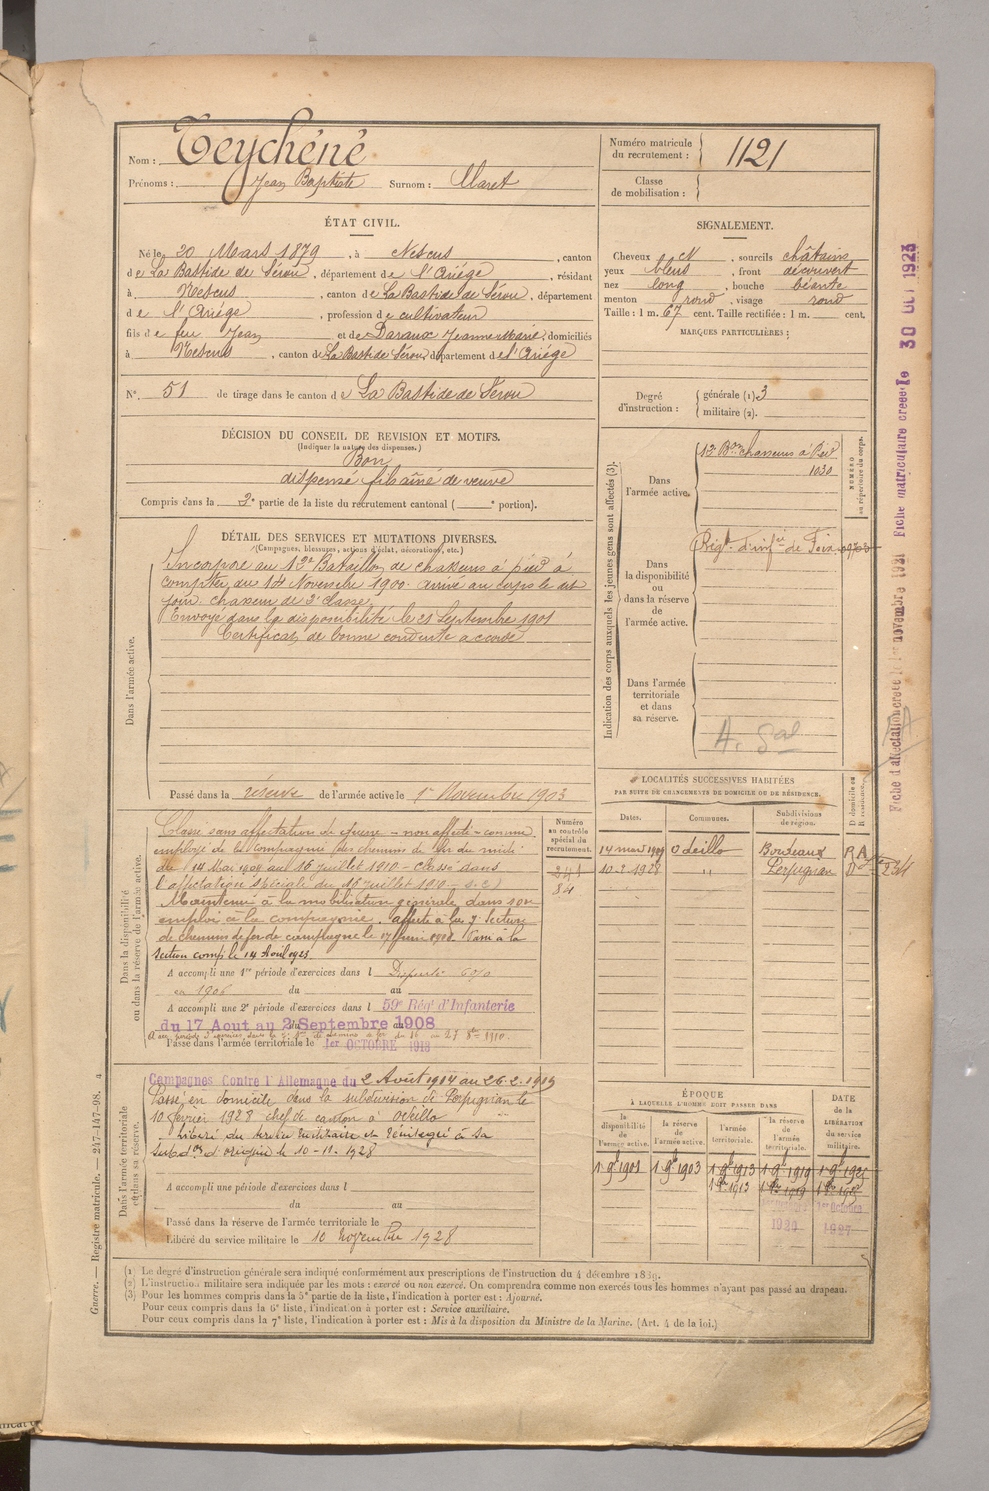 Nom : Teychéné
Prénoms : Jean Baptiste Surnom : Claret
Numéro matricule du recrutement : 1121
Classe de mobilisation :
ÉTAT CIVIL.
Né le 20 Mars 1879, à Nescus, canton
de La Bastide de Sérou, département de l'Ariége, résidant
à Nescus, canton de La Bastide de Sérou, département
d e l'Ariége, profession de cultivateur
fils de feu Jean et de Daraux Jeanne Marie, domiciliés
à Nescus, canton de La Bastide Sérou, département de l'Ariége
N° 51 de tirage dans le canton de La Bastide de Sérou
SIGNALEMENT.
Cheveux ch, sourcils châtains
yeux bleus, front découvert
nez long, bouche béante
menton rond, visage rond
Taille : 1 m. 67 cent. Taille rectifiée : 1 m. cent.
MARQUES PARTICULIÈRES :
Degré d'instruction : générale (1) 3
militaire (2).
DÉCISION DU CONSEIL DE REVISION ET MOTIFS.
(Indiquer la nature des dispenses.)
Bon
dispensé fils aîné de veuve
Compris dans la 2e partie de la liste du recrutement cantonal ( e portion).
DÉTAIL DES SERVICES ET MUTATIONS DIVERSES.
(Campagnes, blessures, actions d'éclat, décorations, etc.)
Dans l'armée active.
Incorporé au 12e Bataillon de chasseurs à pied à
compter du 14 Novembre 1900. arrivé au corps le dit
jour. chasseur de 2e classe
Envoyé dans la disponibilité le 21 Septembre 1901
Certificat de bonne conduite accordé
Passé dans la réserve de l'armée active le 1er Novembre 1903
Indication des corps auxquels les jeunes gens sont affectés (3).
NUMÉRO au répertoire du corps.
Dans l'armée active.
12e Bon chasseurs à Pied
1030
Dans la disponibilité ou dans la réserve de l'armée active.
Régt d'infie de Foix
Dans l'armée territoriale et dans sa réserve.
LOCALITÉS SUCCESSIVES HABITÉES
PAR SUITE DE CHANGEMENTS DE DOMICILE OU DE RÉSIDENCE.
Dates. Communes. Subdivisions de région. D domicile ou R résidence.
14 mars 1909 Odeillo Bordeaux R A
10.2.1928 " Perpignan D
Dans la disponibilité ou dans la réserve de l'armée active.
Numéro au contrôle spécial du recrutement.
84
Classé sans affectation de guerre - non affecté - comme
employé de la Compagnie des chemins de fer du midi
du 14 Mai 1904 au 16 juillet 1910 - Classé dans
l'affectation spéciale du 16 juillet 1910
Maintenu à la mobilisation générale dans son
emploi à la compagnie. affecté à la 7e Section
de chemins de fer de campagne le 17 juin 1918. Passé à la
section comp. le 14 Avril 1923
A accompli une 1re période d'exercices dans l
en 1906 du au
A accompli une 2e période d'exercices dans l 59e Régt d'Infanterie
du 17 Aout au 2 Septembre 1908
Passé dans l'armée territoriale le 1er OCTOBRE 1913
Dans l'armée territoriale et dans sa réserve.
Campagnes Contre l'Allemagne du 2 Août 1914 au 26.2.1919
Passé en domicile dans la subdivision de Perpignan le
10 février 1928 chef de canton à Odeillo
Libéré du service militaire et réintégré à sa
subdon d'origine le 10-11-1928
A accompli une période d'exercices dans l
du au
Passé dans la réserve de l'armée territoriale le
Libéré du service militaire le 10 Novembre 1928
ÉPOQUE
À LAQUELLE L'HOMME DOIT PASSER DANS
DATE de la LIBÉRATION du service militaire.
la disponibilité de l'armée active. la réserve de l'armée active. l'armée territoriale. la réserve de l'armée territoriale.
1 9bre 1901 1 9bre 1903 1 9bre 1913 1 9bre 1919
1913 1919
1er Octobre
1920 1927
(1) Le degré d'instruction générale sera indiqué conformément aux prescriptions de l'instruction du 4 décembre 1889.
(2) L'instruction militaire sera indiquée par les mots : exercé ou non exercé. On comprendra comme non exercés tous les hommes n'ayant pas passé au drapeau.
(3) Pour les hommes compris dans la 5e partie de la liste, l'indication à porter est : Ajourné.
Pour ceux compris dans la 6e liste, l'indication à porter est : Service auxiliaire.
Pour ceux compris dans la 7e liste, l'indication à porter est : Mis à la disposition du Ministre de la Marine. (Art. 4 de la loi.)
Guerre. — Registre matricule. — 247-147-98. 4
Fiche d'affectation créée le 1er novembre 1921 Fiche matriculaire créée le 30 OCT 1923